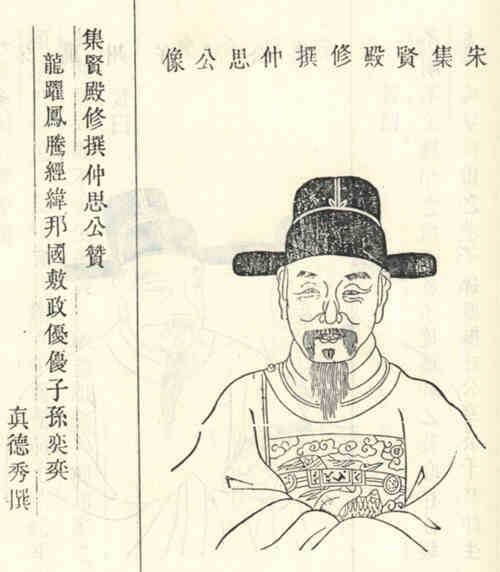 宋集賢殿修撰仲思公像
集賢殿修撰仲思公贊
龍躍鳳騰經緯邦國敷政優優子孫奕奕
真德秀撰